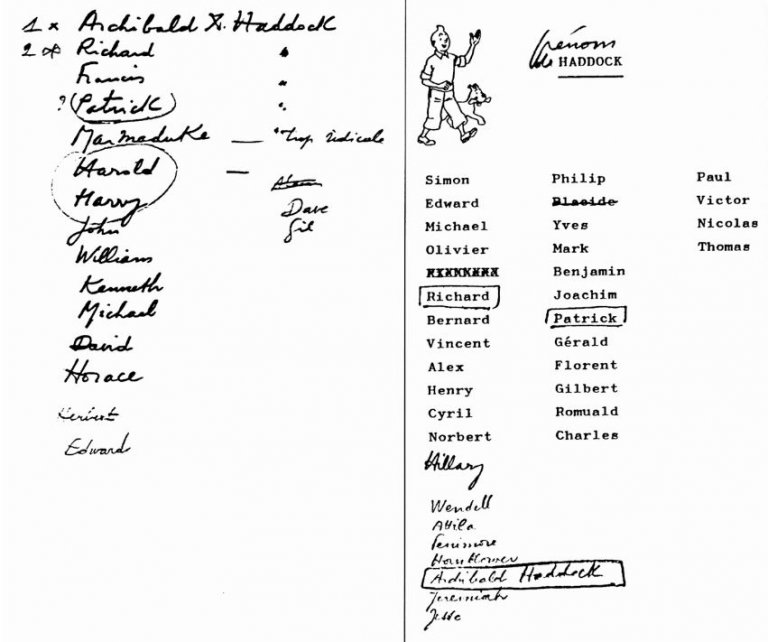 1 x Archibald X. Haddock
2 Richard "
Francis "
? Patrick "
Marmaduke — trop ridicule
Harold —
Harry Dave
John Gil
William
Kenneth
Michael
David
Horace
Herbert
Edward
Prénoms
de HADDOCK
Simon Philip Paul
Edward Placide Victor
Michael Yves Nicolas
Olivier Mark Thomas
Benjamin
Richard Joachim
Bernard Patrick
Vincent Gérald
Alex Florent
Henry Gilbert
Cyril Romuald
Norbert Charles
Hillary
Wendell
Attila
Fenimore
Hornblower
Archibald Haddock
Jeremiah
Jesse